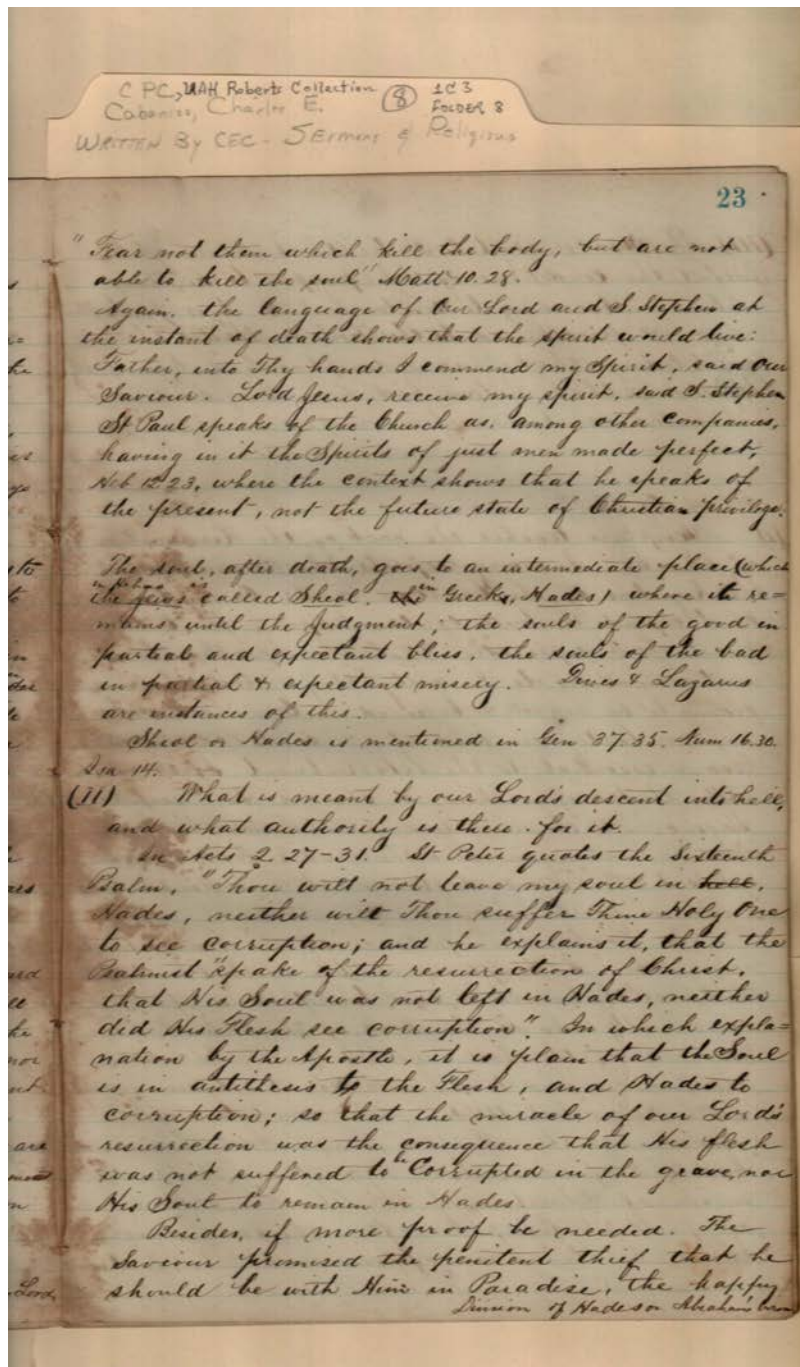 C PC, UAH Roberts Collection 8 1C3
Cabaniss, Charles E. FOLDER 8
WRITTEN By CEC - Sermons & Religious
23
"Fear not them which kill the body, but are not
able to kill the soul" Matt. 10. 28.
Again. the language of Our Lord and S. Stephen at
the instant of death shows that the spirit would live:
Father, into Thy hands I commend my Spirit, said Our
Saviour. Lord Jesus, receive my spirit, said S. Stephen
St Paul speaks of the Church as, among other companies,
having in it the Spirits of just men made perfect,
Heb 12.23, where the context shows that he speaks of
the present, not the future state of Christian privilege.
The soul, after death, goes to an intermediate place (which
in Hebrew is
the Jews called Sheol. the in Greeks, Hades) where it re=
mains until the Judgment; the souls of the good in
partial and expectant bliss, the souls of the bad
in partial & expectant misery. Dives & Lazarus
are instances of this.
Sheol or Hades is mentioned in Gen 37.35. Num 16.30.
Isa 14.
(11) What is meant by our Lord's descent into hell,
and what authority is there for it.
In Acts 2. 27-31. St Peter quotes the Sixteenth
Psalm, "Thou wilt not leave my soul in hell,
Hades, neither wilt Thou suffer Thine Holy One
to see corruption; and he explains it, that the
Psalmist "spake of the resurrection of Christ,
that His Soul was not left in Hades, neither
did His Flesh see corruption". In which expla=
nation by the Apostle, it is plain that the Soul
is in antithesis to the Flesh, and Hades to
corruption; so that the miracle of our Lord's
resurrection was the consequence that His flesh
was not suffered to Corrupted in the grave, nor
His Soul to remain in Hades.
Besides, if more proof be needed. The
Saviour promised the penitent thief that he
should be with Him in Paradise, the happy
Division of Hades or Abraham's bosom